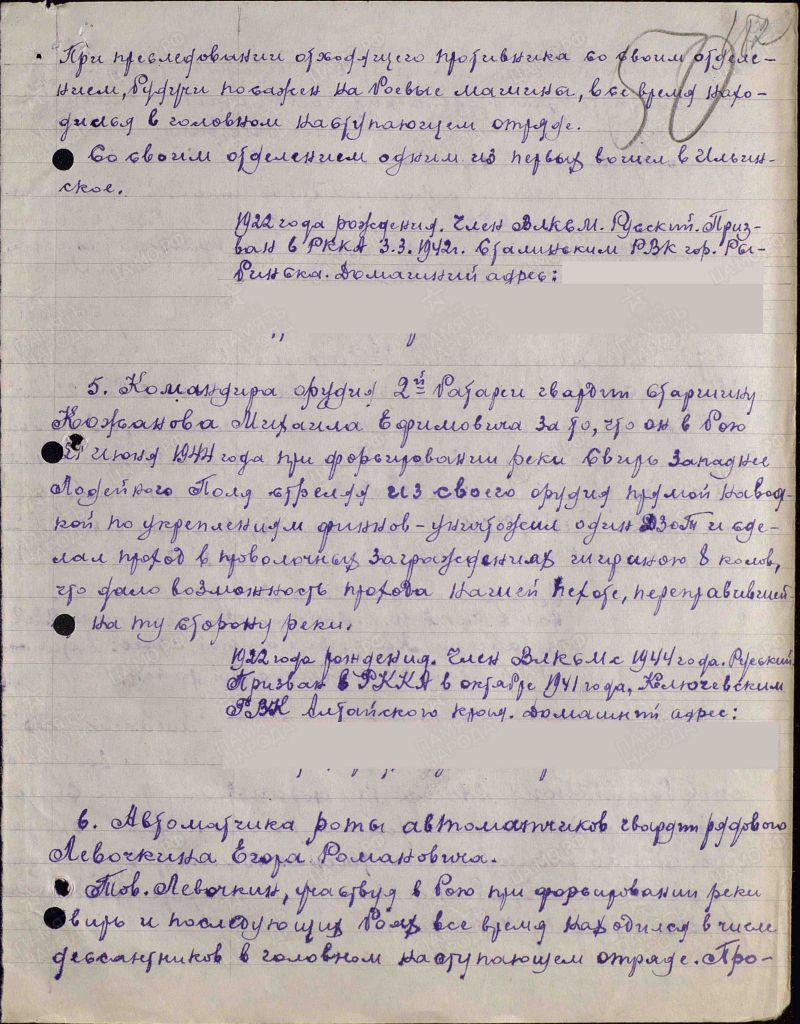 50
При преследовании отходящего противника со своим отделе-
нием, будучи посажен на боевые машины, все время нахо-
дился в головном наступающем отряде.
Со своим отделением одним из первых вошел в Ильин-
ское.
1922 года рождения. Член ВЛКСМ. Русский. Приз-
ван в РККА 3.3.1942г. Сталинским РВК гор. Ры-
бинска. Домашний адрес:
5. Командира орудия 2й батареи гвардии старшину
Кожанова Михаила Ефимовича за то, что он в бою
21 июня 1944 года при форсировании реки Свирь западнее
Лодейного Поля стреляя из своего орудия прямой навод-
кой по укреплениям финнов - уничтожил один ДЗОТ и сде-
лал проход в проволочных заграждениях шириною 8 колов,
что дало возможность прохода нашей пехоте, переправившей-
на ту сторону реки.
1922 года рождения. Член ВЛКСМ с 1944 года. Русский.
Призван в РККА в октябре 1941 года, Ключевским
РВК Алтайского края. Домашний адрес:
6. Автоматчика роты автоматчиков гвардии рядового
Левочкина Егора Романовича.
Тов. Левочкин, участвуя в бою при форсировании реки
Свирь и последующих боях все время находился в числе
десантников в головном наступающем отряде. Про-